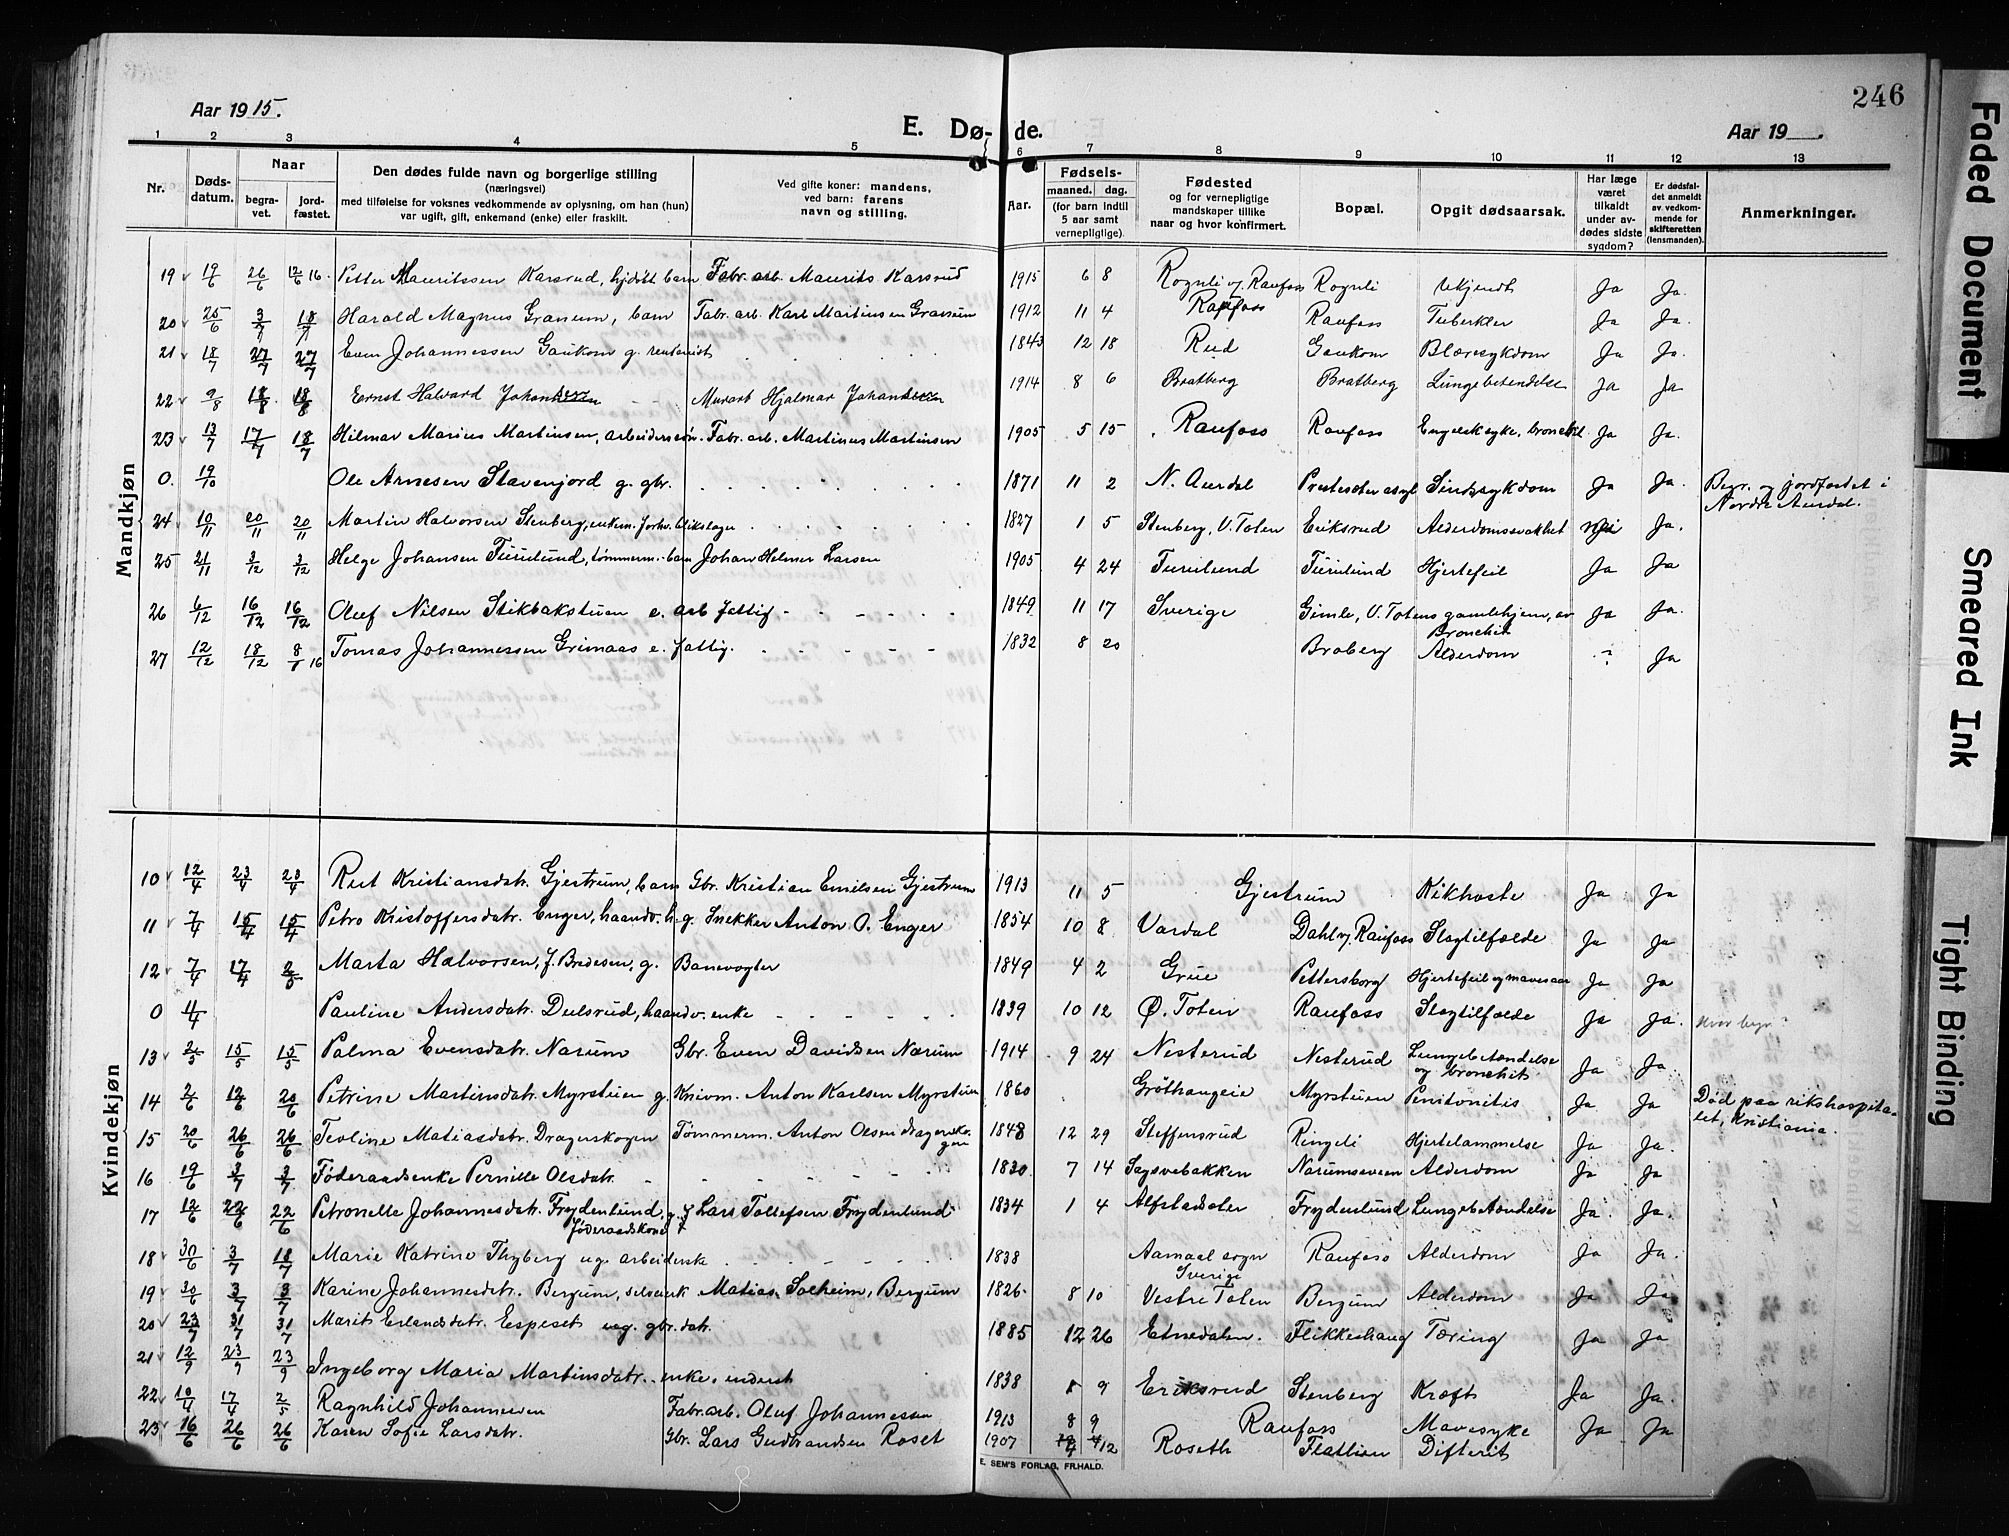 246
Aar 1915.
E. Døde.
Aar 19
1 2 3 4 5 6 7 8 9 10 11 12 13
Nr.
Døds-
datum.
Naar
begra-
vet.
jord-
fæstet.
Den dødes fulde navn og borgerlige stilling
(næringsvei)
med tilføielse for voksnes vedkommende av oplysning, om han (hun)
var ugift, gift, enkemand (enke) eller fraskilt.
Ved gifte koner: mandens,
ved barn: farens
navn og stilling.
Aar.
Fødsels-
maaned. dag.
(for barn indtil
5 aar samt
vernepligtige).
Fødested
og for vernepligtige
mandskaper tillike
naar og hvor konfirmert.
Bopæl.
Opgit dødsaarsak.
Har læge
været
tilkaldt
under av-
dødes sidste
sygdom?
Er dødsfal-
det anmeldt
av vedkom-
mende for
skifteretten
(lensmanden).
Anmerkninger.
Mandkjøn
19 19/6 26/6 12/6 16. Petter Mauritssen Karsrud, barn Fabr. arb. Maurits Karsrud 1915 6 8 Rognli v/ Raufoss Rognli Ukjendt Ja Ja.
20 25/6 3/7 18/7 Harald Magnus Granum, barn Fabr. arb. Karl Martinsen Granum 1912 11 4 Raufoss Raufoss Tuberkler Ja Ja.
21 18/7 27/7 27/7 Even Johannessen Gaukom g. rentenist 1843 12 18 Rud Gaukom Blæresykdom Ja Ja.
22 9/8 18/8 18/8 Ernst Halvard Johansen Murart Hjalmar Johansen 1914 8 6 Bratberg Bratberg Lungebetendelse Ja Ja
23 13/7 17/7 18/7 Hilmar Marius Martinsen, arbeiderssøn. Fabr. arb. Martinus Martinsen 1905 5 15 Raufoss Raufoss Engelsksyke, bronchit. Ja Ja.
0. 19/10 Ole Arnesen Stavenjord g. gbr. 1871 11 2 N. Aurdal Presteseter asyl Sindssykdom Ja Ja. Begr. og jordfæstet i
Nordre Aurdal.
24 10/11 20/11 20/11 Martin Halvorsen Stenberg, enkem. forhv. 1827 1 5 Stenberg, V. Toten Eriksrud Alderdomssvakhet nei Ja.
25 21/11 3/12 3/12 Helge Johansen Furulund, tømmerm. barn Johan Helmer Larsen 1905 4 24 Furulund Furulund Hjertefeil Ja Ja
26 6/12 16/12 16/12 Oluf Nilsen Stikbakstuen e. arb fattig 1849 11 17 Sverige Gimle, V. Totens gamlehjem, av
Bronchit Ja Ja.
27 12/12 18/12 8/1 16 Tomas Johannessen Grimaas e. fattig. 1832 8 20 Broberg Alderdom ? Ja
Kvindekjøn
10 12/4 23/4 23/4 Rut Kristiansdatr. Gjestrum, barn Gbr. Kristian Emilsen Gjestrum 1913 11 5 Gjestrum Kikhoste Ja Ja
11 7/4 15/4 15/4 Petra Kristoffersdatr. Enger, haandv. h. g. Snekker Anton O. Enger 1854 10 8 Vardal Dahl v/ Raufoss Slagtilfælde Ja Ja
12 7/4 17/4 2/5 Marta Halvorsen, f. Bredesen, g. Banevogter 1849 4 2 Grue Pettersborg Hjertefeil og mavesaar Ja Ja
0 4/4 Pauline Andersdatr. Dulsrud, haandv. enke 1839 10 12 Ø. Toten Raufoss Slagtilfælde Ja Ja. Hvor begr.?
13 2/5 15/5 15/5 Palma Evensdatr. Narum Gbr. Even Davidsen Narum 1914 9 24 Nesterud Nesterud Lungebetændelse
og bronchit Ja Ja
14 2/6 12/6 20/6 Petrine Martinsdatr. Myrstuen g. Knivm. Anton Karlsen Myrstuen 1860 Grøthaugeie Myrstuen Peritonitis Ja Ja Død paa rikshospita-
let, Kristiania.
15 20/6 26/6 26/6 Teoline Matiasdatr. Dragerskogen Tømmerm. Anton Olsen Dragersko-
gen 1848 12 29 Steffensrud Ringeli Hjertelammelse Ja Ja.
16 19/6 3/7 3/7 Føderaadsenke Pernille Olsdatr. 1830 7 14 Sagsvebakken Narumseveen Alderdom Ja Ja
17 12/6 22/6 22/6 Petronelle Johannesdatr. Frydenlund, g. f. Lars Tollefsen Frydenlund
føderaadskone 1834 1 4 Alfstadseter Frydenlund Lungebetændelse Ja Ja.
18 30/6 3/7 18/7 Marie Katrine Thyberg ug. arbeiderske 1838 Aamaal sogn
Sverige Raufoss Alderdom Ja Ja.
19 20/6 3/7 3/7 Karine Johannesdatr. Bergum, selveierk Matias Solheim, Bergum 1826 8 10 Vestre Toten Bergum Alderdom Ja Ja
20 23/7 31/7 31/7 Marit Erlandsdatr. Espeset ug. gbr. datr. 1885 12 26 Etnedalen. Flikkeshaug Tæring Ja Ja
21 12/9 23/9 23/9 Ingeborg Maria Martinsdatr. enke, inderst 1838 8 9 Eriksrud Stenberg Kræft Ja Ja.
22 10/4 17/4 2/5 Ragnhild Johannessen Fabr. arb. Oluf Johannessen 1913 8 9 Raufoss Mavesyke Ja Ja
23 16/6 26/6 26/6 Karen Sofie Larsdatr. Gbr. Lars Gudbrandsen Roset 1907 4 12 Roseth Flatlien Difterit
E. SEM'S FORLAG, FR.HALD.
Faded Document
Smeared Ink
Tight Binding